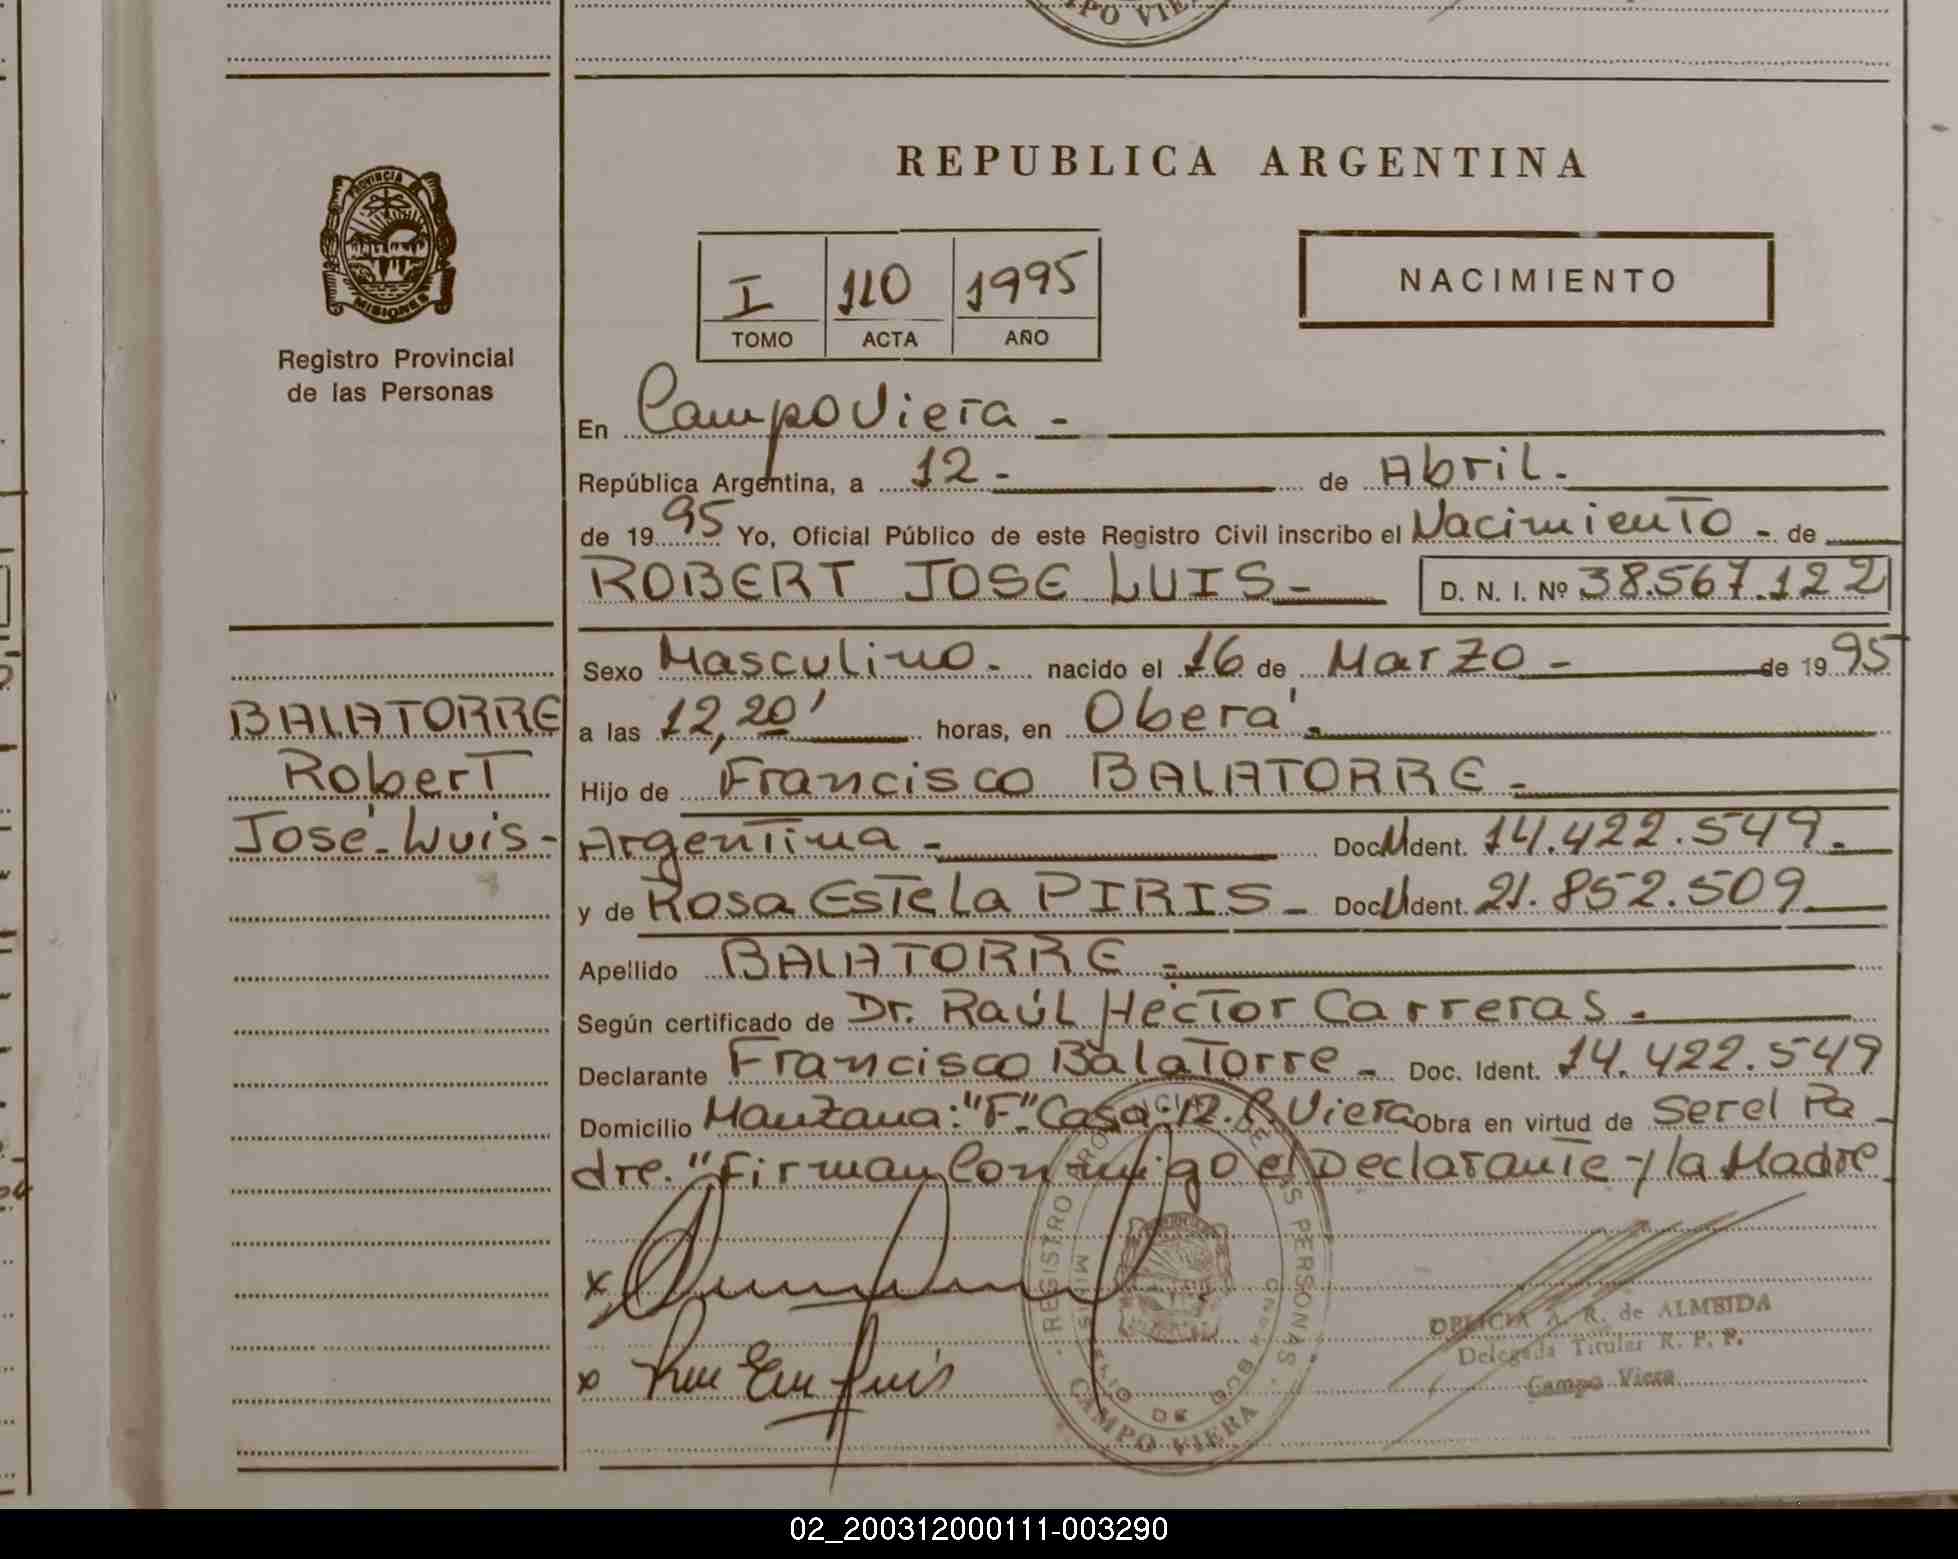 CAMPO VIERA
REPUBLICA ARGENTINA
PROVINCIA DE
MISIONES
Registro Provincial
de las Personas
I 110 1995
TOMO ACTA AÑO
NACIMIENTO
En Campo Viera -
República Argentina, a 12 - de Abril -
de 1995 Yo, Oficial Público de este Registro Civil inscribo el Nacimiento - de
ROBERT JOSE LUIS - D. N. I. Nº 38.567.122
BALATORRE
Robert
José Luis -
Sexo Masculino - nacido el 16 de Marzo - de 1995
a las 12,20' horas, en Oberá -
Hijo de Francisco BALATORRE -
Argentina - Doc. U Ident. 14.422.549 -
y de Rosa Estela PIRIS - Doc. U Ident. 21.852.509
Apellido BALATORRE -
Según certificado de Dr. Raúl Héctor Carreras -
Declarante Francisco Balatorre - Doc. Ident. 14.422.549
Domicilio Manzana: "F" Casa 12. C. Viera Obra en virtud de Ser el Pa
dre. "Firman Conmigo el Declarante y la Madre
x
x
REGISTRO PROVINCIAL DE LAS PERSONAS
MISIONES
CAMPO VIERA
DELICIA A. R. de ALMEIDA
Delegada Titular R. P. P.
Campo Viera
02_200312000111-003290